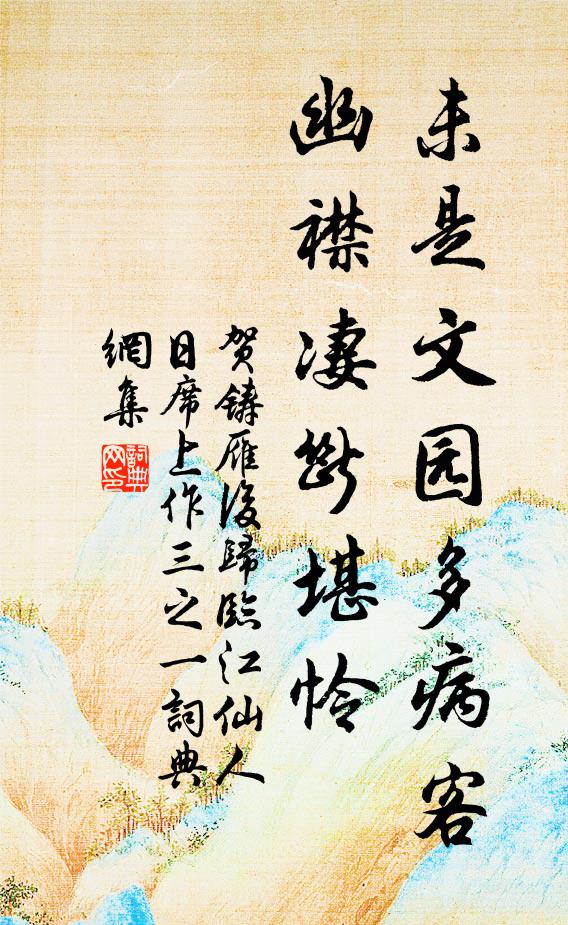 未是文园多病客
幽襟凄断堪怜
贺鑄雁後歸臨江仙人
日席上作三之一詞典
網集
詞典
网印